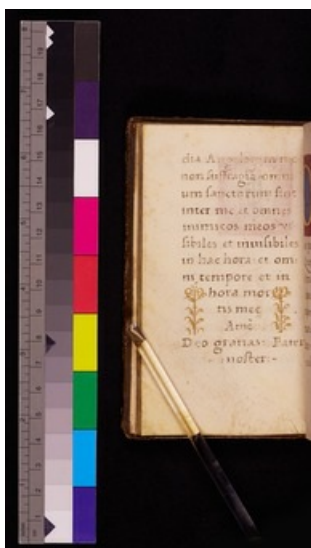 non suffragia omni
um sanctorum sint
inter me et omnes
inimicos meos vi
sibiles et inuisibiles
in hac hora et om
ni tempore et in
hora mor
tis mee
Amē
Deo gratias. Pater
noster.